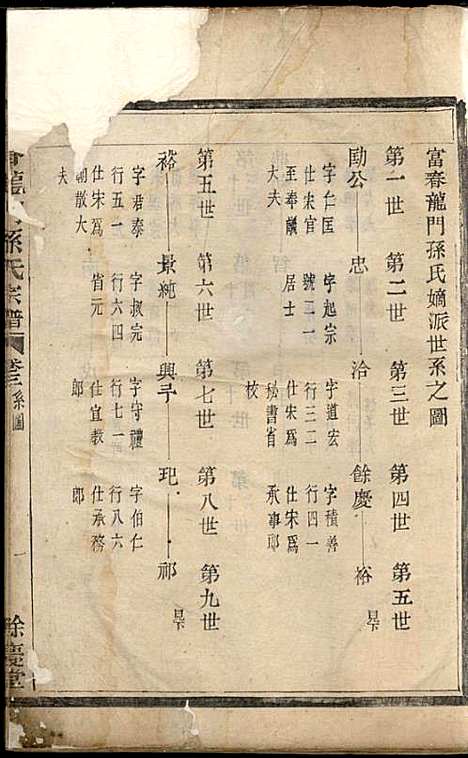 富春龍門孫氏嫡派世系之圖
第一世 第二世 第三世 第四世 第五世
勛公 忠 洽 餘慶 裕
字仁匡 字起宗 字道宏 字積善
仕宋官 號三一 行三二 行四一
至奉議 居士 仕宋爲 仕宋爲
大夫 秘書省 承事郎
校
第五世 第六世 第七世 第八世 第九世
裕 景純 興 玘 祁
字君泰 字叔完 字守禮 字伯仁
行五一 行六四 行七一 行八六
仕宋爲 省元 仕宣教 仕承務
朝散大 郎 郎
夫
孫氏宗譜 卷三 系圖 一 餘慶堂